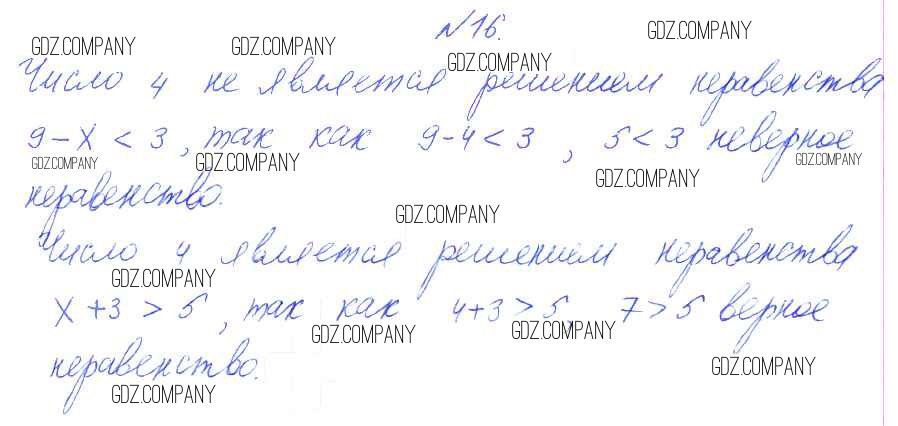 №16.
GDZ.COMPANY GDZ.COMPANY GDZ.COMPANY GDZ.COMPANY
Число 4 не является решением неравенства
9-x < 3, так как 9-4<3, 5<3 неверное
GDZ.COMPANY GDZ.COMPANY GDZ.COMPANY GDZ.COMPANY
неравенство.
GDZ.COMPANY
Число 4 является решением неравенства
GDZ.COMPANY
x+3 > 5, так как 4+3>5, 7>5 верное
GDZ.COMPANY GDZ.COMPANY
неравенство.
GDZ.COMPANY GDZ.COMPANY